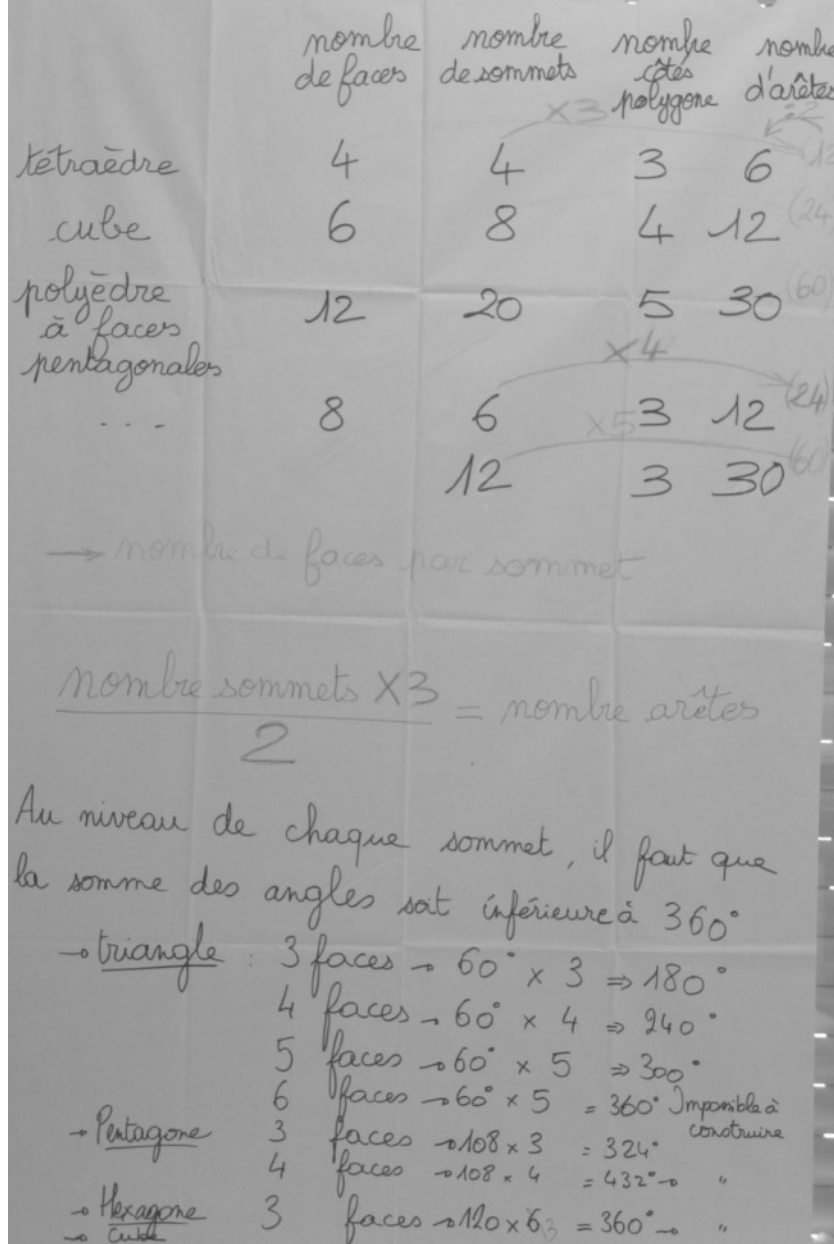 nombre de faces nombre de sommets nombre côtés polygone nombre d'arêtes
×3 :2
tétraèdre 4 4 3 6 (12
cube 6 8 4 12 (24
polyèdre à faces pentagonales 12 20 5 30 (60)
×4
.... 8 6 3 12 (24)
×5
12 3 30 (60)
→ nombre de faces par sommet
nombre sommets ×3 / 2 = nombre arêtes
Au niveau de chaque sommet, il faut que
la somme des angles soit inférieure à 360°
→ triangle : 3 faces → 60° × 3 ⇒ 180°
4 faces → 60° × 4 ⇒ 240°
5 faces → 60° × 5 ⇒ 300°
6 faces → 60° × 5 = 360° Impossible à construire
→ Pentagone 3 faces → 108 × 3 = 324°
4 faces → 108 × 4 = 432° → "
→ Hexagone 3 faces → 120 × 6 3 = 360° → "
→ Cube